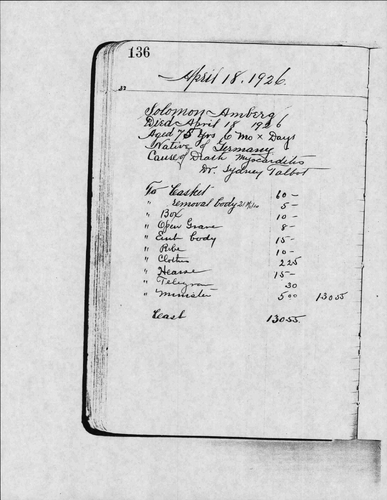 136
April 18, 1926.
Solomon Amberg
Died April 18, 1926
Aged 75 Yrs 6 Mo x Days
Native of Germany
Cause of Death Myocarditis
Dr. Sydney Talbot
To Casket 60 -
" removal body 5 -
" Box 10 -
" Open Grave 8 -
" Emb body 15 -
" Robe 10 -
" Clothes 2 25
" Hearse 15 -
" Telegram 30
" Minister 5 00 130 55
Cash 130 55